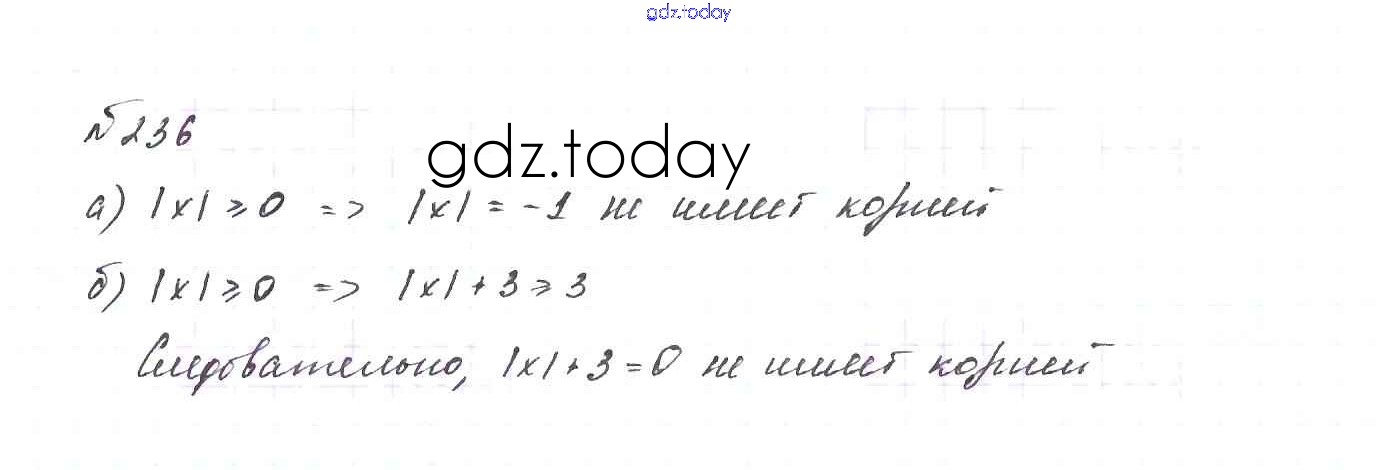 gdz.today
№236
gdz.today
а) |x| ≥ 0 => |x| = -1 не имеет корней
б) |x| ≥ 0 => |x| + 3 ≥ 3
Следовательно, |x| + 3 = 0 не имеет корней